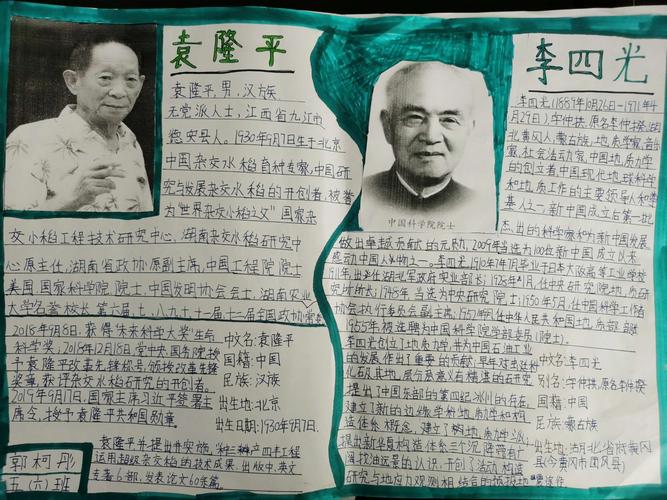 袁隆平
袁隆平,男,汉族
无党派人士,江西省九江市
德安县人。1930年9月7日生于北京
中国杂交水稻育种专家,中国研
究与发展杂交水稻的开创者,被誉
为"世界杂交水稻之父"国家杂
交水稻工程技术研究中心、湖南杂交水稻研究中
心原主任,湖南省政协原副主席,中国工程院院士
美国国家科学院院士,中国发明协会会士,湖南农业
大学名誉校长,第六届七、八九十十一届十二届全国政协常委
2018年9月8日,获得"未来科学大奖"生命
科学奖;2018年12月18日,党中央、国务院授
予袁隆平改革先锋称号,颁授改革先锋
奖章,获评杂交水稻研究的开创者。
2019年9月17日,国家主席习近平签署主
席令,授予袁隆平共和国勋章。
中文名:袁隆平
国籍:中国
民族:汉族
出生地:北京
出生日期:1930年9月7日.
袁隆平并提出并实施,"种三产四丰工程
运用超级杂交稻的技术成果,出版中、英文
专著6部,发表论文60余篇。
郭柯彤
五(六)班
李四光
李四光(1889年10月26日-1971年4
月29日),字仲拱,原名李仲揆,湖
北黄冈人,蒙古族,地质学家、音乐
家、社会活动家,中国地质力学
的创立者、中国现代地球科学
和地质工作的主要领导人和奠
基人之一,新中国成立后第一批
杰出的科学家和为新中国发展
中国科学院院士
做出卓越贡献的元勋,2009年当选为100位新中国成立以来
感动中国人物之一。李四光,1910年7月毕业于日本大阪高等工业学校
1911年,出任湖北军政府实业部长;1928年1月,任中央研究院地质研
究所所长;1948年当选为中央研究院院士;1950年5月,任中国科学工作者
协会执行委员会副主席;1952年9月,任中华人民共和国地质部部长
1955年被选聘为中国科学院学部委员(院士)。
李四光创立了地质力学,并为中国石油工业
的发展作出了重要的贡献,早年对蜓科
化石及其地层分层意义有精湛的研究
提出了中国东部的第四纪冰川的存在,
建立了新的边缘学科地质力学和构
造体系概念,建立了地质力学派;
提出新华夏构造体系三个沉降带有广
阔找油远景的认识,开创了活动构造
研究与地应力观测相结合的预报地震途径
中文名:李四光
别名:字仲拱,原名李仲揆
国籍:中国
民族:蒙古族
出生地:湖北省黄冈
县(今黄冈市团风县)